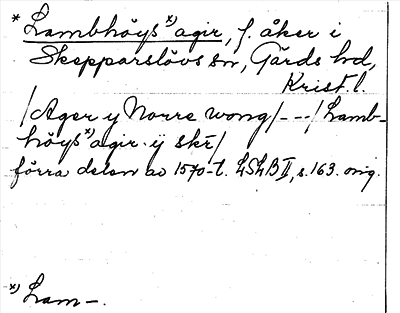 * Lambhöys*) agir, f. åker i
Skepparslövs sn, Gärds hd,
Krist. l.
/Ager y Norre wong/---/Lamb-
höys*) agir ÿ skr̄/
förra delen av 1570-t. LSLB II, s. 163. orig.
*) Lam-.